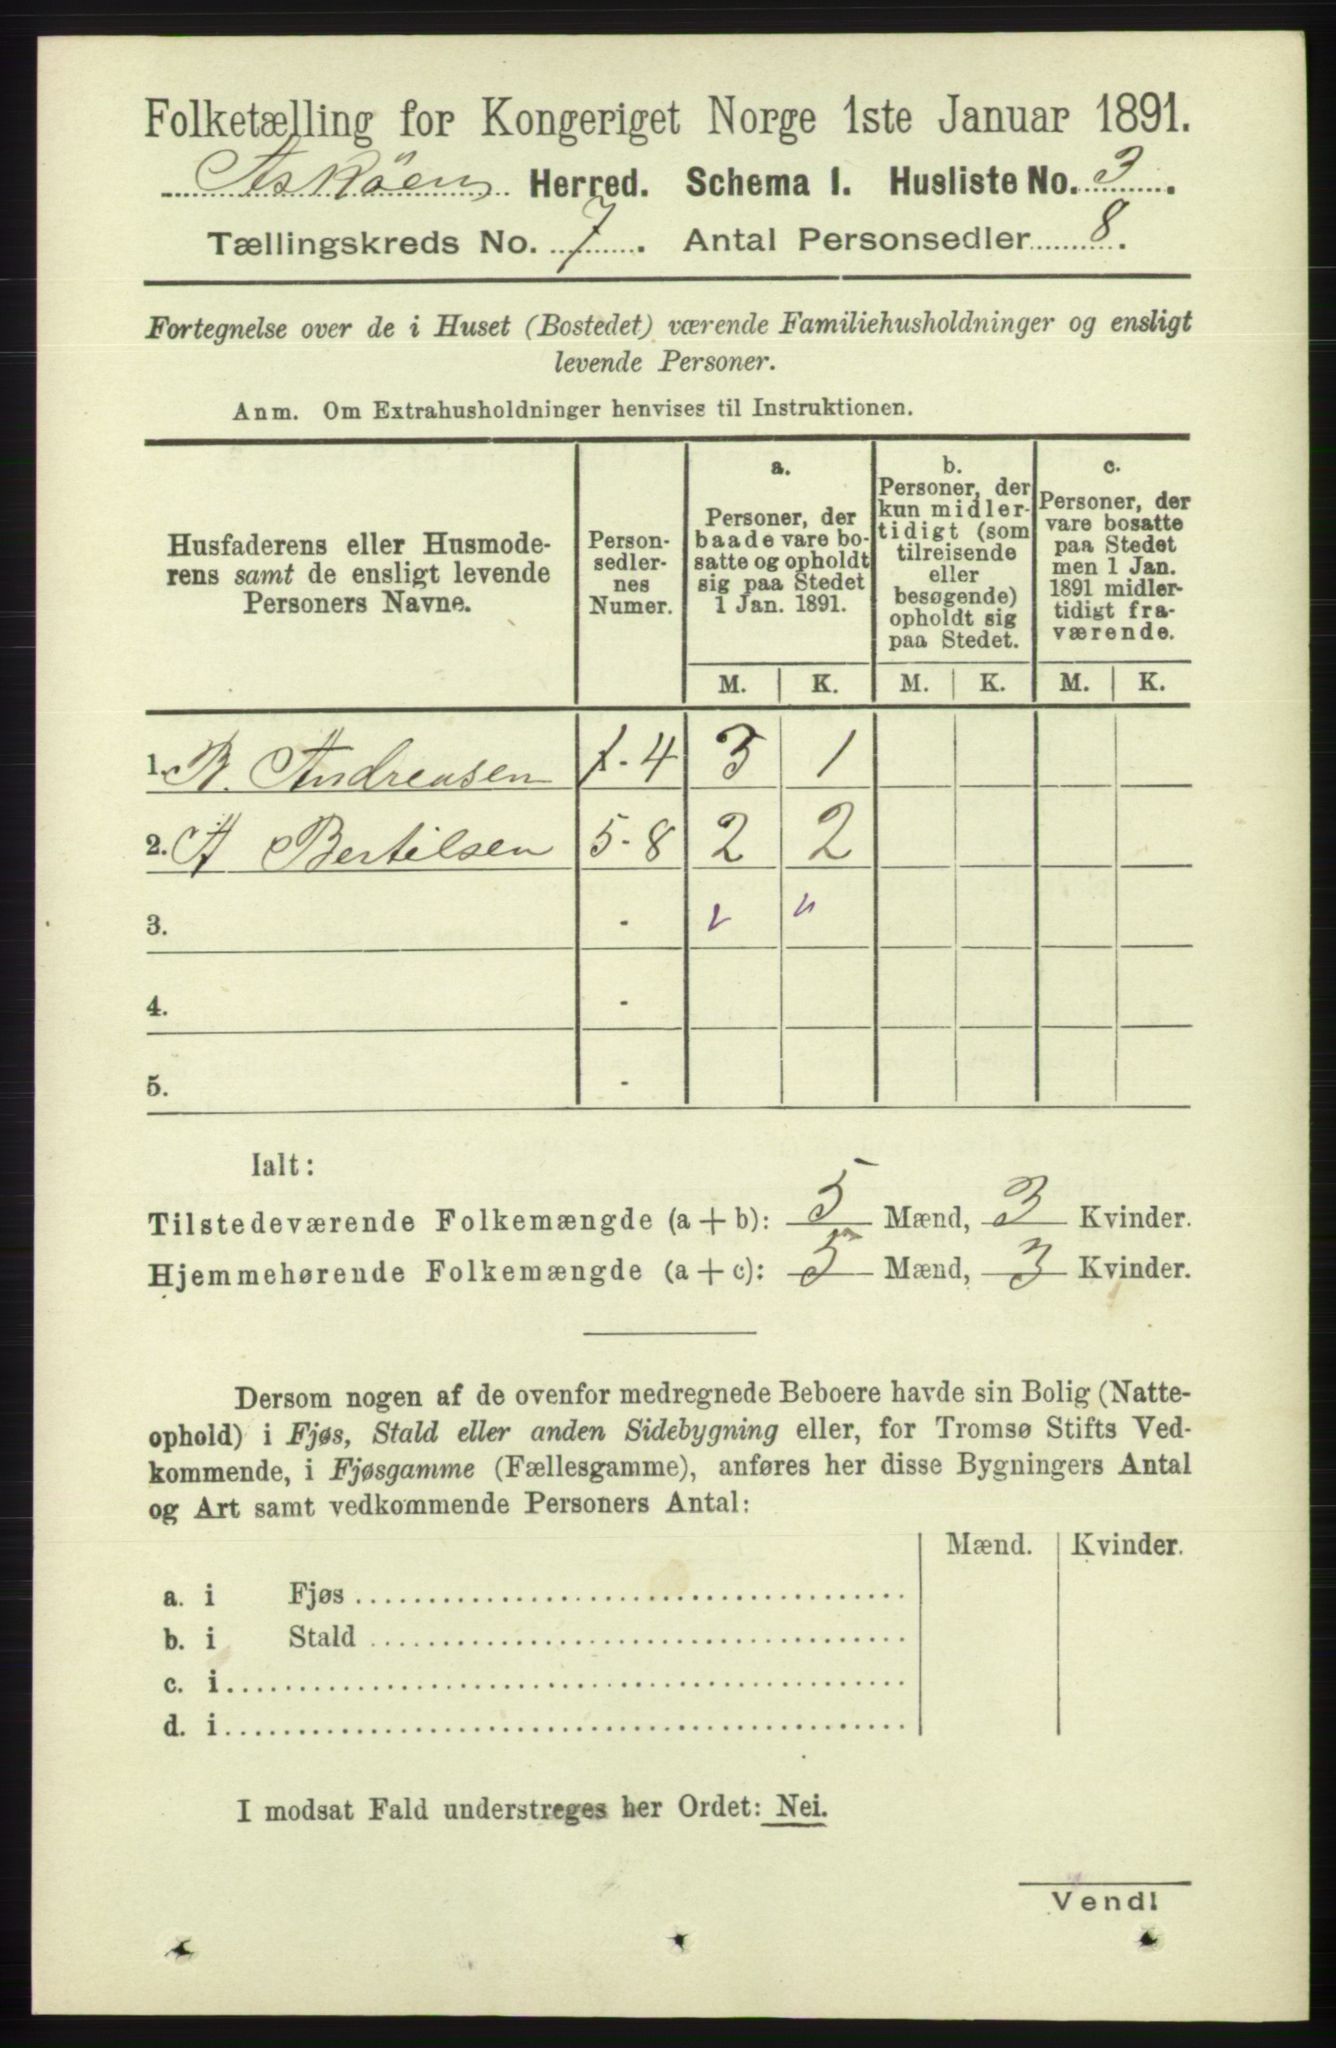 Folketælling for Kongeriget Norge 1ste Januar 1891.
Askøen Herred. Schema I. Husliste No. 3.
Tællingskreds No. 7. Antal Personsedler 8.
Fortegnelse over de i Huset (Bostedet) værende Familiehusholdninger og ensligt
levende Personer.
Anm. Om Extrahusholdninger henvises til Instruktionen.
Husfaderens eller Husmode-
rens samt de ensligt levende
Personers Navne.
Person-
sedler-
nes
Numer.
a.
Personer, der
baade vare bo-
satte og opholdt
sig paa Stedet
1 Jan. 1891.
b.
Personer, der
kun midler-
tidigt (som
tilreisende
eller
besøgende)
opholdt sig
paa Stedet.
c.
Personer, der
vare bosatte
paa Stedet
men 1 Jan.
1891 midler-
tidigt fra-
værende.
M. K. M. K. M. K.
1. B. Andreasen 1-4 3 1
2. A Bertilsen 5-8 2 2
3. -
4. -
5. -
Ialt:
Tilstedeværende Folkemængde (a + b): 5 Mænd, 3 Kvinder.
Hjemmehørende Folkemængde (a + c): 5 Mænd, 3 Kvinder.
Dersom nogen af de ovenfor medregnede Beboere havde sin Bolig (Natte-
ophold) i Fjøs, Stald eller anden Sidebygning eller, for Tromsø Stifts Ved-
kommende, i Fjøsgamme (Fællesgamme), anføres her disse Bygningers Antal
og Art samt vedkommende Personers Antal:
Mænd. Kvinder.
a. i Fjøs
b. i Stald
c. i
d. i
I modsat Fald understreges her Ordet: Nei.
Vend!